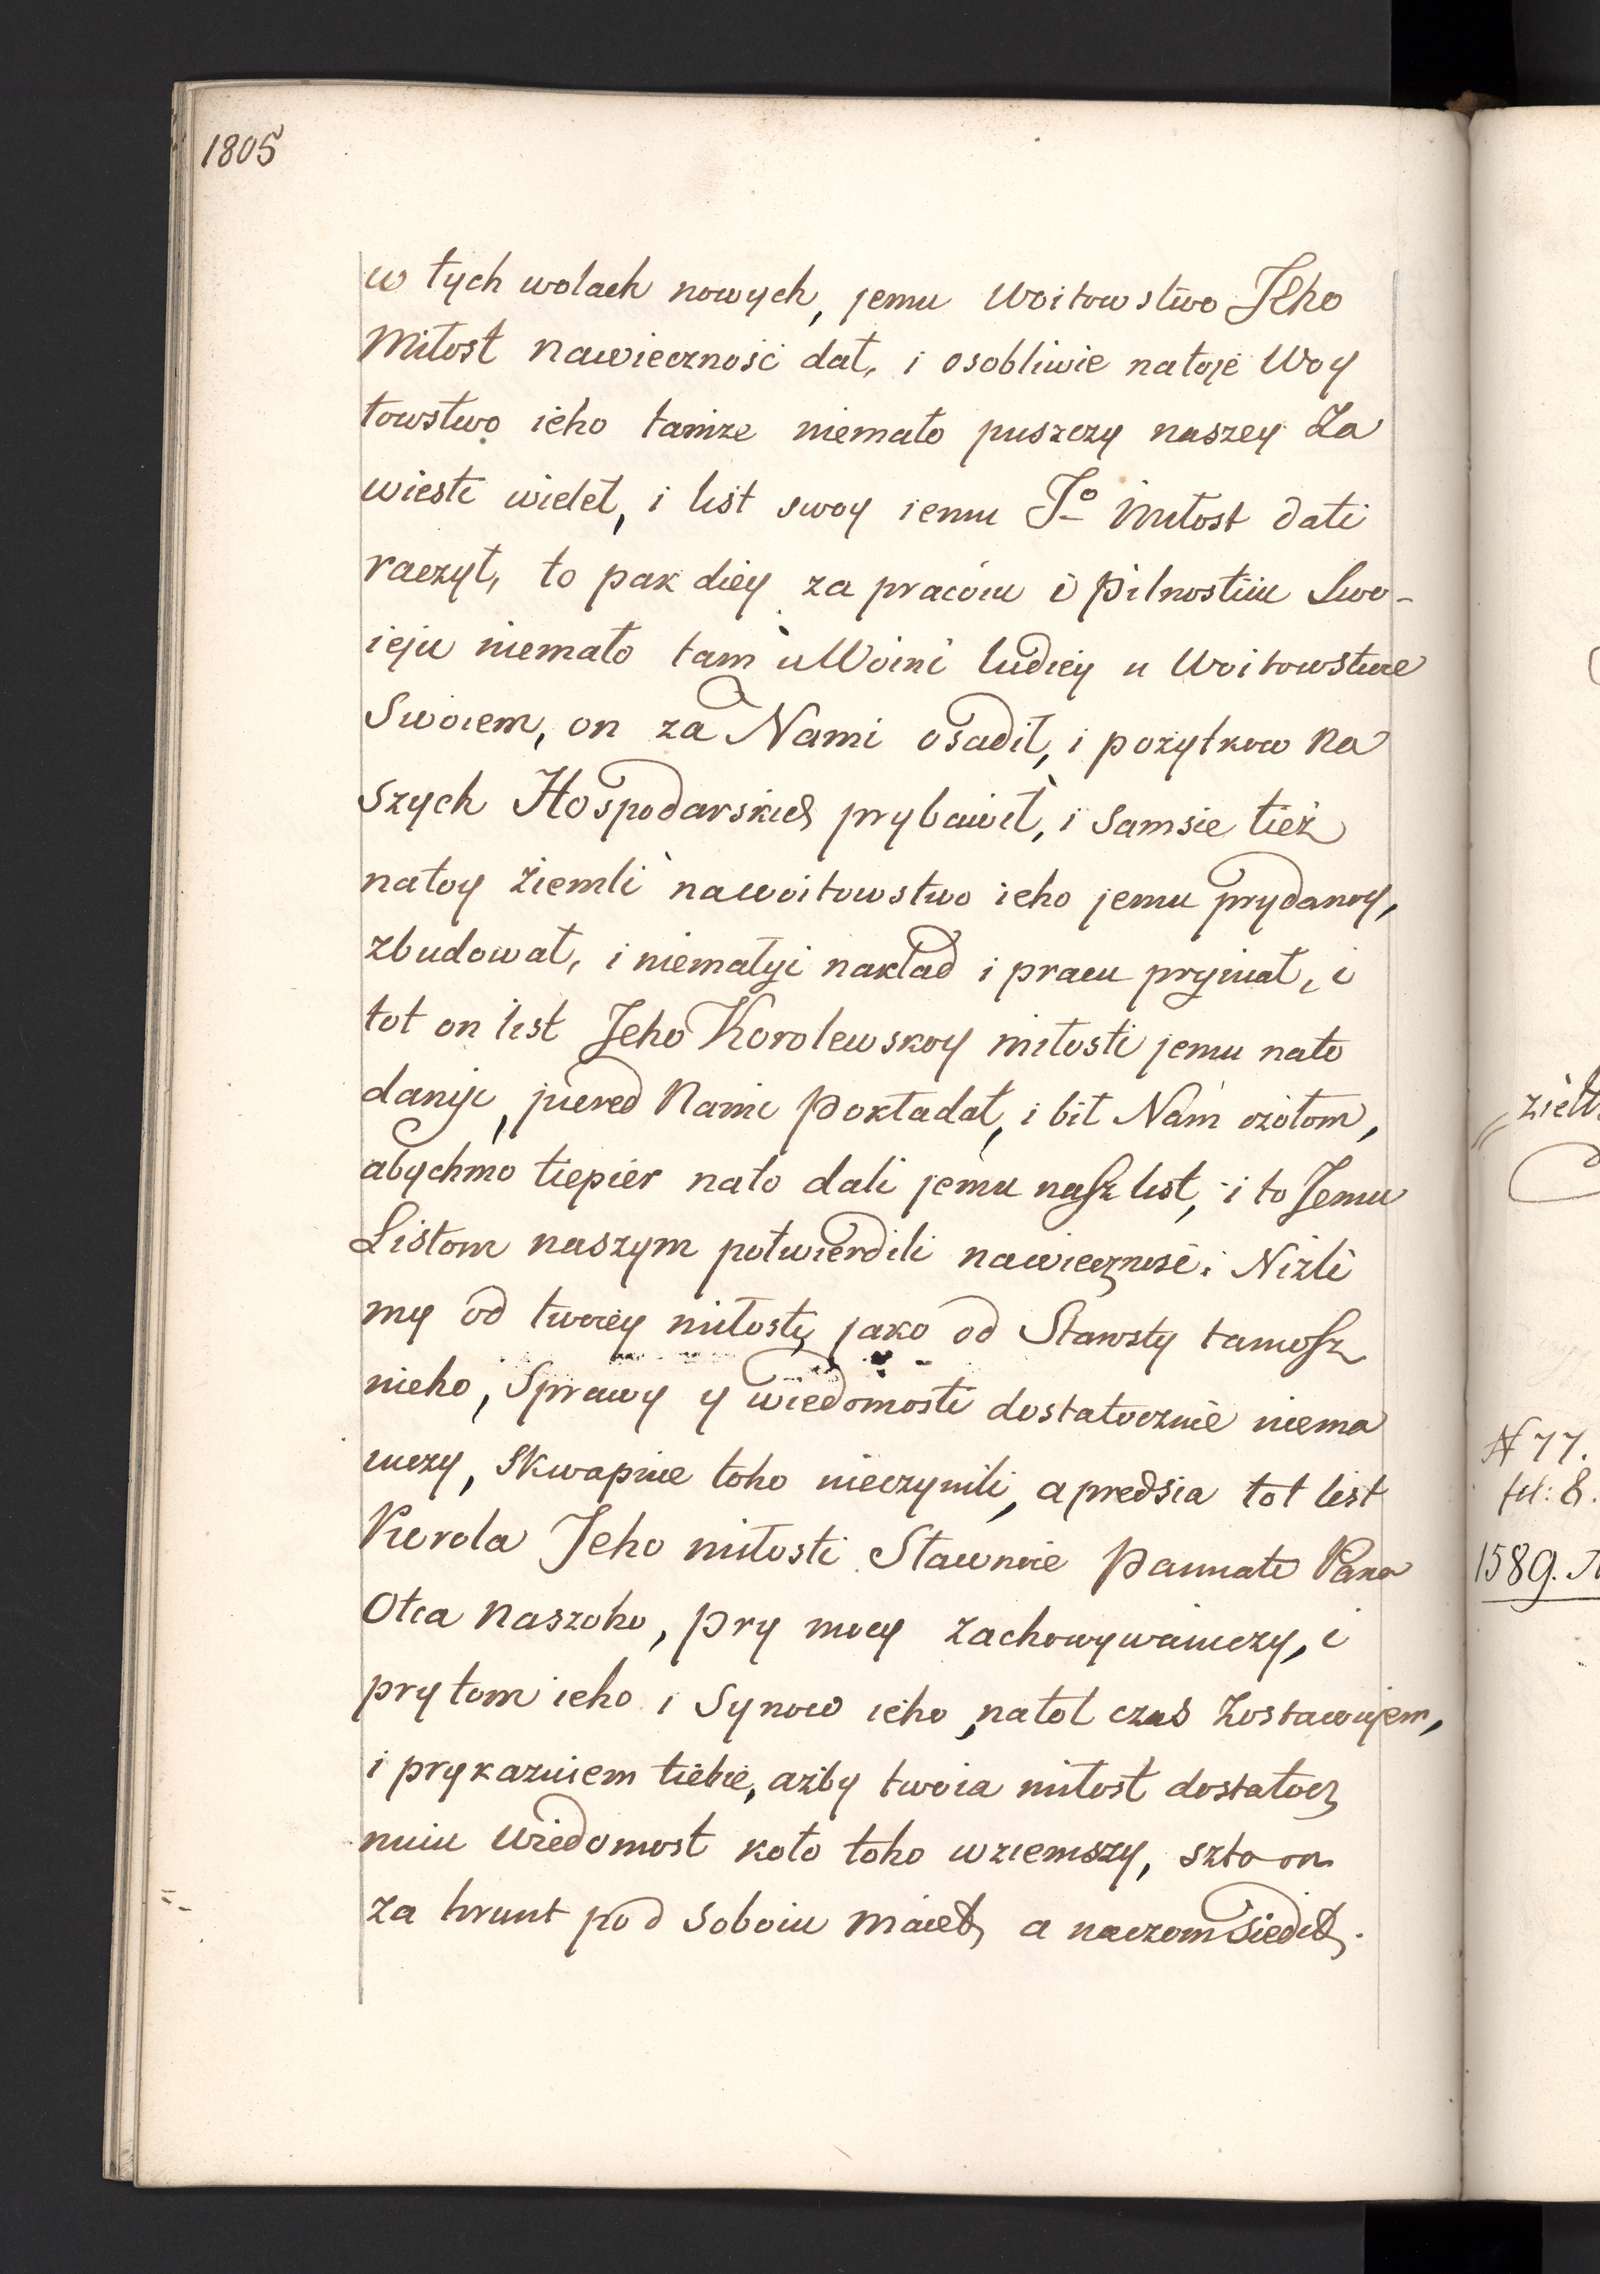 1805
w tych wolach nowych, jemu Woitowstwo Jeho
Miłost nawieczność dał, i osobliwie natoje Woy
towstwo ieho tamże niemało puszczy naszey Za
wiesti wieleł, i list swoy iemu Jº Miłost dati
raczył, to pak diey za pracoiu i pilnostiiu Swo-
ieju niemało tam u Woini ludiey u Woitowstwe
Swoiem, on za Nami osadił, i pożytkow Na
szych Hospodarskich prybawił, i samsie tież
natoy ziemli nawoitowstwo ieho jemu prydanoy,
zbudował, i niemałyi nakład i pracu pryimał, i
tot on list Jeho Korolewskoy miłosti jemu nato
danyi, pered Nami pokładał, i bił Nam czołom,
abychmo tiepier nato dali jemu nasz list, i to Jemu
Listom naszym potwierdili nawieczność. Niżli
my od twoiey miłosti, jako od Starosty tamosz
nieho, Sprawy y wiedomosti dostatocznie niema
iuczy, skwapnie toho nieczynili, a predsia tot list
Korola Jeho miłosti Sławnoie Pamiati Pana
Otca Naszoho, pry mocy zachowywaiuczy, i
prytom ieho i Synow ieho, natot czas zostawujem,
i prykazuiem tiebie, ażby twoia miłost dostatocz
nuiu Wiedomost koło toho wziemszy, szto on
za hrunt pod soboiu maiet, a naczom siedit.
zielt.
N 77.
fol: 8.
1589.